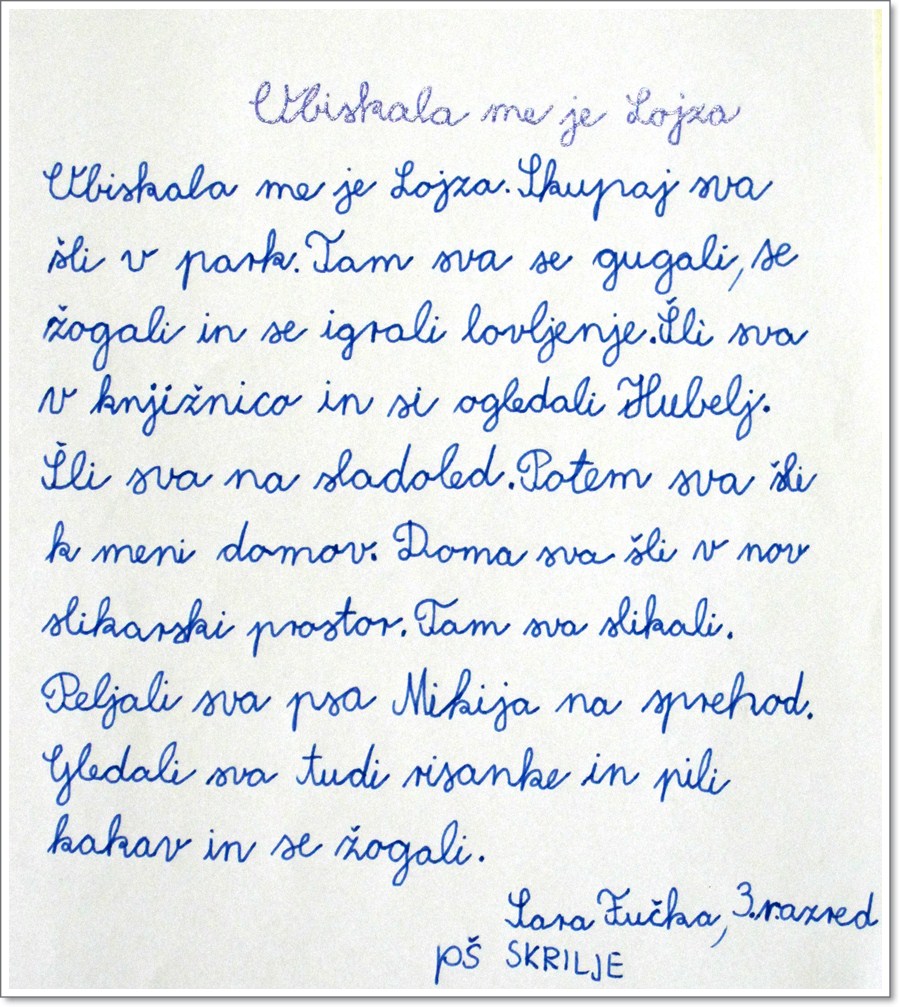 Obiskala me je Lojza
Obiskala me je Lojza. Skupaj sva
šli v park. Tam sva se gugali, se
žogali in se igrali lovljenje. Šli sva
v knjižnico in si ogledali Hubelj.
Šli sva na sladoled. Potem sva šli
k meni domov. Doma sva šli v nov
slikarski prostor. Tam sva slikali.
Peljali sva psa Mikija na sprehod.
Gledali sva tudi risanke in pili
kakav in se žogali.
Sara Fučka, 3. razred
PŠ SKRILJE